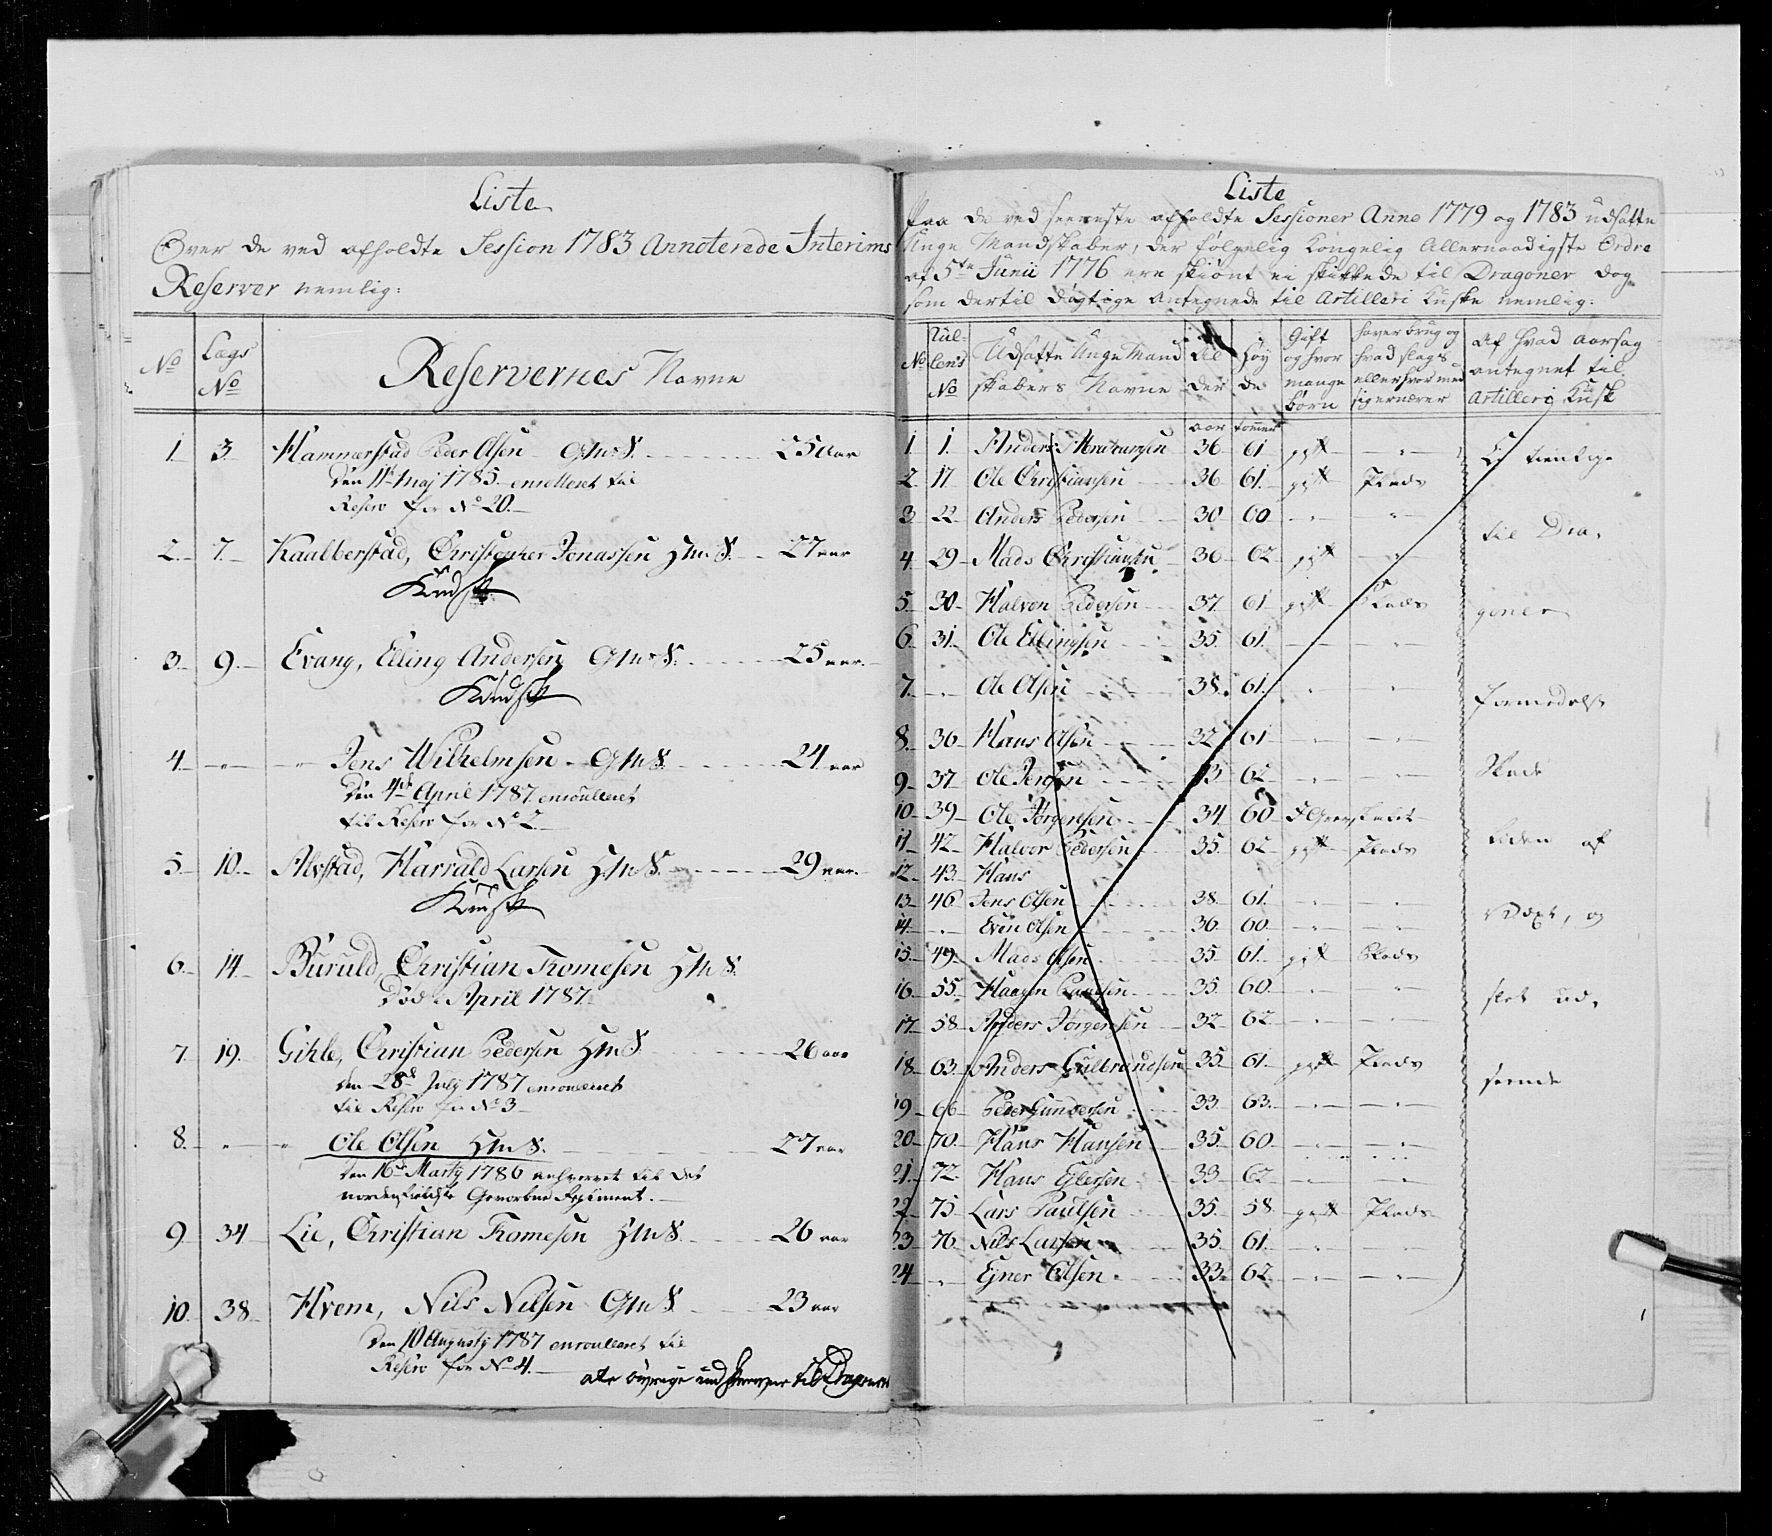 Liste
Over de ved afholdte Session 1783 Annoterede Interims
Reserver nemlig:
No
Lægs No
Reservernes Navne
1. 3. Hammerstad Peder Olsen 25 aar
Den 11te Maj 1785 enrolleret til
Reserv for No 20.
2. 7. Kaalberstad, Christopher Jonassen 27 aar
Kudsk
3. 9. Evang, Elling Andersen 25 aar.
Kudsk
4. Jens Wilhelmsen 24 aar
Den 4de April 1787 enroulleret
til Reserv for No 2.
5. 10. Alvstad, Harrald Larsen 29 aar.
Kudsk
6. 14. Buruld, Christian Tromesen
Død April 1787.
7. 19. Gihle, Christian Pedersen 26 aar
den 28de July 1787 enroulleret
til Reserv for No 3
8. Ole Olsen 27 aar
den 16de Marty 1786 til det
nordenfieldske Geworbne Regiment.
9. 34 Lie, Christian Tromesen 26 aar
10. 38 Hvem, Nils Nilsen 23 aar
Den 10 Augusty 1787 enroulleret til
Reserv for No 4.
alle øvrige til Dragoner
Liste
Paa de ved seeneste afholdte Sessioner Anno 1779 og 1783 udsatte
Unge Mandskaber, der følgelig Kongelig Allernaadigste Ordre
af 5te Junii 1776 ere skiønt ei skikkede til Dragoner dog
som dertil dygtige antegnede til Artilleri Kuske nemlig:
No
Rul-
lens
No
Udsatte Unge Mand
skabers Navne
Al
der
Høy
de
Gift
og hvor
mange
børn
haver brug og
hvad slags
eller hvormed
sig ernærer
Af hvad aarsag
antegnet til
Artilleri Kusk
aar tommer
1 1. Anders 36 61 gift
2 17 Ole Christiansen 36 61. gift Plads
3 22 Anders Pedersen 30 60
4 29 Mads Christiansen 36 62 gift
5 30 Halvor Pedersen 37 61 gift Plads
6 31. Ole Ellingsen 35. 61.
7. Ole Olsen 38. 61.
8. 36 Hans Olsen 32 61
9 37 Ole Jensen 33 62
10 39 Ole Jørgensen 34 60
11 42 Halvor Pedersen 35. 62 gift Plads
12 43. Hans
13 46 Jens Olsen 38. 61.
14. Even Olsen 36 60
15. 49. Mads Olsen 35. 61. gift Plads
16. 55. Haagen Paulsen 35. 60.
17. 58. Anders Jørgensen 32 62
18. 63. Anders Gulbrandsen 35. 61. gift Plads
19 66 Peder Gundersen 33 63.
20 70. Hans Hansen 35. 60.
21. 72. Hans Ejlersen 33 62
22 75 Lars Paulsen 35. 58. gift Plads
23 76. Nils Larsen 35. 61.
24 Ejner Olsen 33. 62
Ei tienlige
til Dra-
goner
formedelst
Skade
liden af
Væxt, og
slet ud-
seende